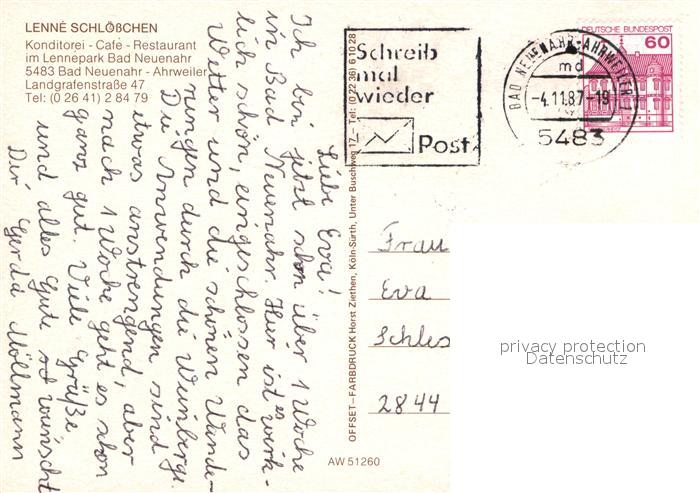 LENNÉ SCHLÖßCHEN
Konditorei - Café - Restaurant
im Lennepark Bad Neuenahr
5483 Bad Neuenahr - Ahrweiler
Landgrafenstraße 47
Tel: (0 26 41) 2 84 79
Liebe Eva!
Ich bin jetzt schon über 1 Woche
in Bad Neuenahr. Hier ist es wirk-
lich schön, eingeschlossen das
Wetter und die schönen Wande-
rungen durch die Weinberge.
Die Anwendungen sind
etwas anstrengend, aber
nach 1 Woche geht es schon
ganz gut. Viele Grüße
und alles Gute wünscht
Dir Gerda Möllmann
OFFSET–FARBDRUCK Horst Ziethen, Köln-Sürth, Unter Buschweg 17 – Tel: (0 22 36) 6 10 28
Schreib
mal
wieder
Post
BAD NEUENAHR-AHRWEILER
md
-4.11.87-19
5483
DEUTSCHE BUNDESPOST
60
Frau
Eva
Schles
2844
privacy protection
Datenschutz
AW 51260